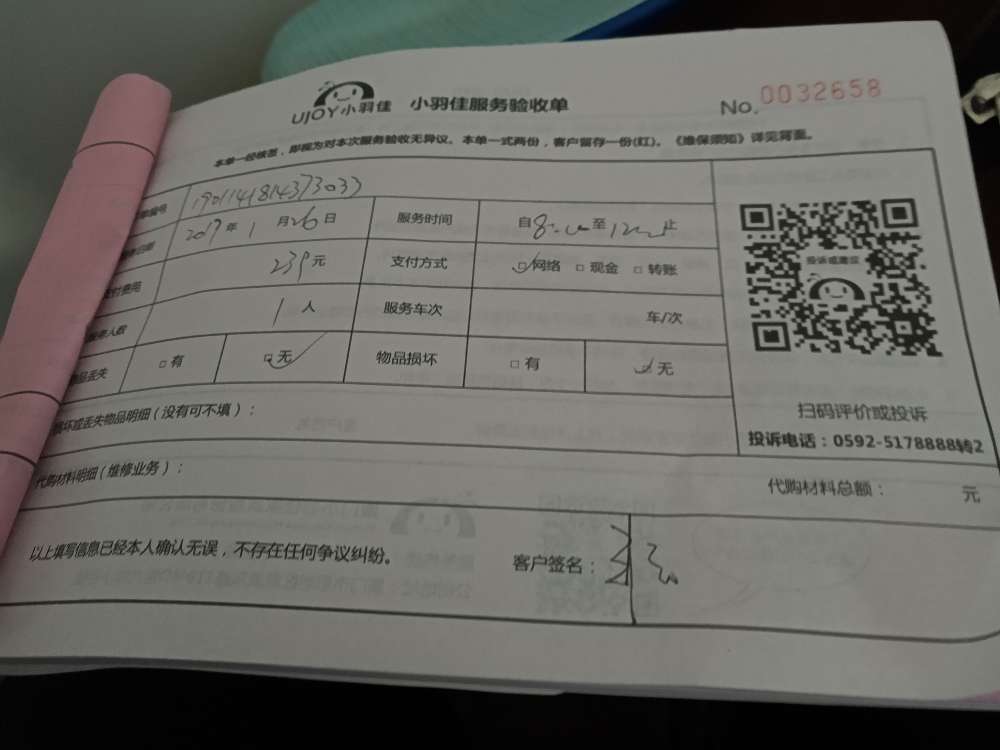 UJOY小羽佳 小羽佳服务验收单 No. 0032658
本单一经核签，即视为对本次服务验收无异议。本单一式两份，客户留存一份(红)。《维保须知》详见背面。
编号 1901141814373033
2019年1月26日 服务时间 自8:00至12:00止
付费用 239元 支付方式 ☑网络 □现金 □转账
务人数 1人 服务车次 车/次
物品丢失 □有 ☑无 物品损坏 □有 ☑无
投诉或建议
扫码评价或投诉
投诉电话：0592-5178888转2
损坏或丢失物品明细（没有可不填）：
代购材料明细（维修业务）： 代购材料总额： 元
以上填写信息已经本人确认无误，不存在任何争议纠纷。 客户签名：